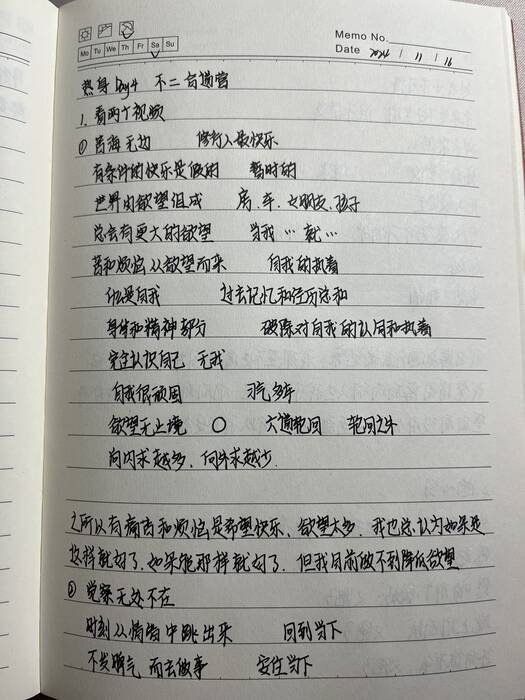 Memo No.
Mo Tu We Th Fr Sa Su
Date 2024 / 11 / 16
热身 Day4 不二言道营
1. 看两个视频
① 苦海无边 修行人最快乐
有条件的快乐是假的 暂时的
世界由欲望组成 房、车、女朋友、孩子
总会有更大的欲望 当我…就…
苦和烦恼从欲望而来 自我的执着
什么是自我 过去记忆和经历总和
身体和精神部分 破除对自我的认同和执着
穿过认识自己 无我
自我很顽固 习气多年
欲望无止境 ○ 六道轮回 轮回之外
向内求越多,向外求越少.
之所以有痛苦和烦恼是希望快乐、欲望太多. 我也总认为如果是
这样就好了、如果能那样就好了. 但我目前做不到降低欲望
② 觉察无处不在
时刻从情绪中跳出来 回到当下
不发脾气 而去做事 安住当下